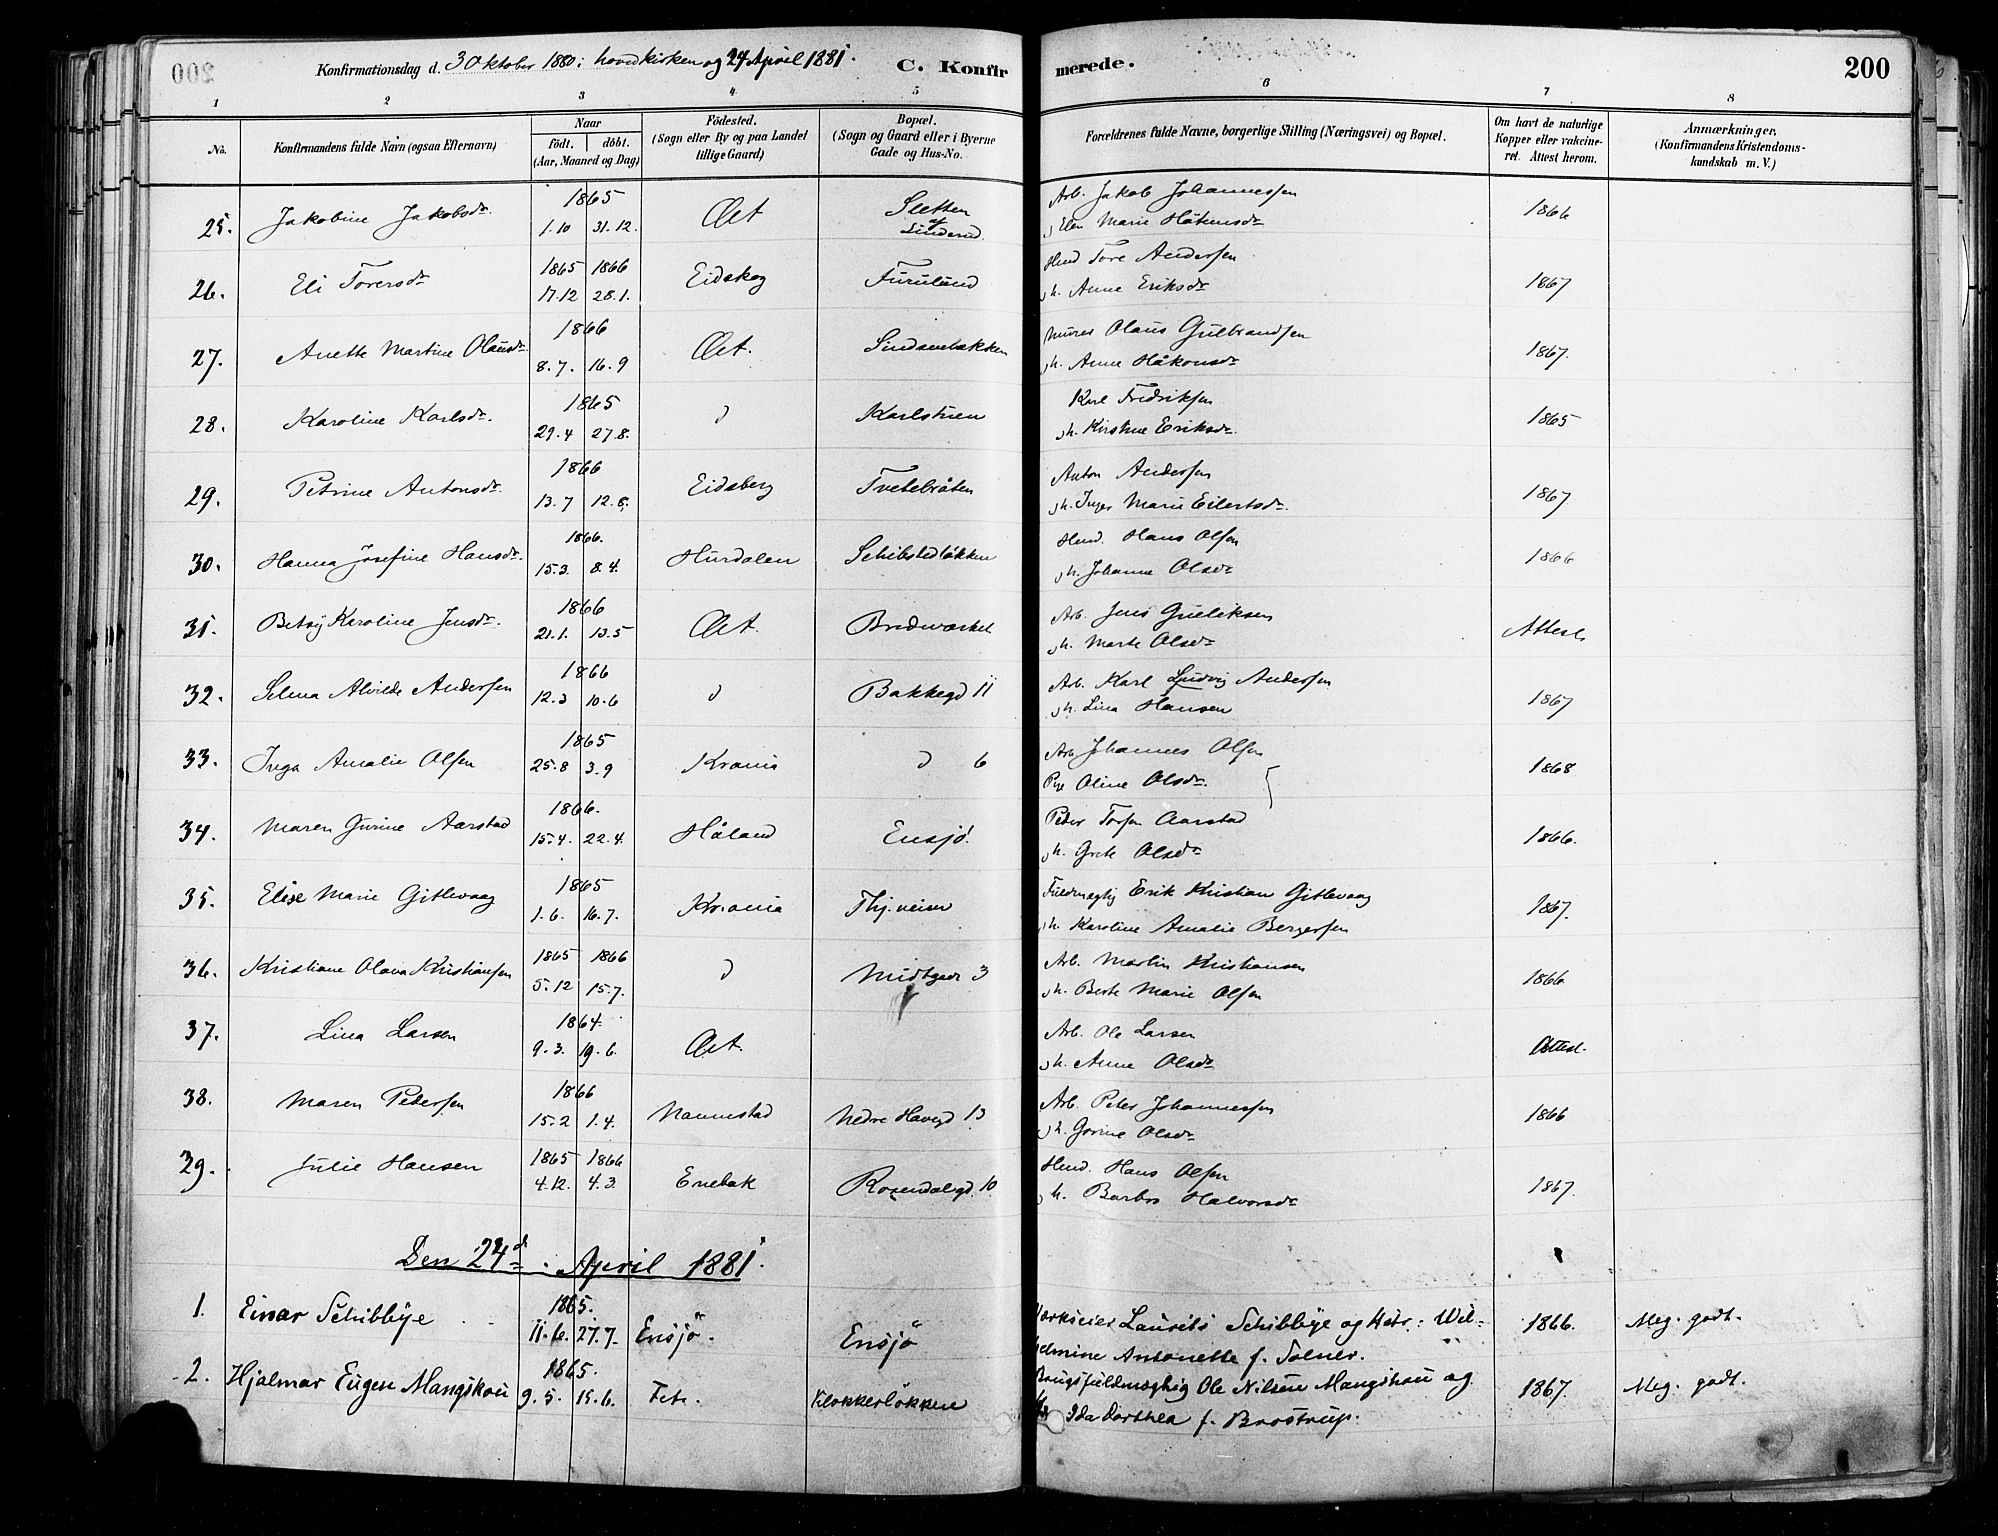 Konfirmationsdag d. 3 Oktober 1880 i hovedkirken og 24 April 1881. C. Konfirmerede. 200
1 2 3 4 5 6 7 8
No. Konfirmandens fulde Navn (ogsaa Efternavn) Naar födt. döbt. (Aar, Maaned og Dag) Födested. (Sogn eller By og paa Landet tillige Gaard) Bopæl. (Sogn og Gaard eller i Byerne Gade og Hus-No. Forældrenes fulde Navne, borgerlige Stilling (Næringsvei) og Bopæl. Om havt de naturlige Kopper eller vakcineret. Attest herom. Anmærkninger, (Konfirmandens Kristendomskundskab m. V.)
25. Jakobine Jakobsdr. 1865 1.10 31.12. Øst Sletten af Linderud Arb. Jakob Johannessen
Elen Marie Håkensdr 1866
26. Eli Toresdr 1865 1866 17.12 28.1. Eidskog Furulund Hmd Tore Andersen
h. Anne Eriksdr 1867
27. Anette Martine Olausdr 1866 8.7. 16.9 Øst. Murer Olaus Gulbrandsen
h. Anne Håkonsdr 1867.
28. Karoline Karlsdr. 1865 29.4 27.8. d Karlstuen Karl Fredriksen
h. Kirstine Eriksdr. 1865
29. Petrine Antonsdr. 1866 13.7 12.8. Eidsberg Tvetebråten Anton Andersen
h. Inger Marie Eilertsdr. 1867
30. Hanna Josefine Hansdr. 1866. 15.3. 8.4. Hurdalen Schibstedløkken Hmd. Hans Olsen
h. Johanne Olsdr 1866
31. Betsy Karoline Jensdr. 1866 21.1. 13.5 Øst. Arb. Jens Guliksen
h. Marte Olsdr Attest
32. Selma Alvilde Andersen 1866 12.3 10.6 d Bakkegd 11 Arb. Karl Ludvig Andersen
h. Lina Hansen 1867
33. Inga Amalie Olsen 1865 25.8 3.9 Krania d 6 Arb Johannes Olsen
Pge Oline Olsdr. 1868
34. Maren Gurine Aarstad 1866. 15.4. 22.4. Håland Ensjø. Peder Torsen Aarstad
h. Grete Olsdr 1866.
35. Elise Marie Gitlevaag 1865 1.6. 16.7. Kr.ania Thj.veien Fuldmægtig Erik Kristian Gitlevaag
h. Karoline Amalie Bergersen 1867.
36. Kristiane Olava Kristiansen 1865 1866 5.12 15.7. d Midtgade 3 Arb. Martin Kristiansen
h. Berte Marie Olsen 1866
37. Lina Larsen 1864. 9.3. 19.6. Øst. Arb. Ole Larsen
h. Anne Olsdr Attest.
38. Maren Pedersen 1866 15.2 1.4. Nannestad Nedre Havegd 13 Arb. Peter Johannessen
h. Gorine Olsdr 1866
39. Julie Hansen 1865 1866 4.12. 4.3. Enebak Rosendalsgd. 10 Hmd. Hans Olsen
h. Barbro Halvorsdr 1867.
Den 24d. April 1881.
1. Einar Schibbye 1865. 11.6. 27.7. Ensjö. Ensjö Værkseier Laurits Schibbye og Hstr.: Wilhelmine Antonette f. Solner. 1866. Meg. godt.
2. Hjalmar Eugen Mangskou 1865. 9.5. 15.6. Fet. Klokkerløkken Brugsfuldmægtig Ole Nilsen Mangskou og
Ida Dorthea f. Brostrup. 1867. Meg. godt.